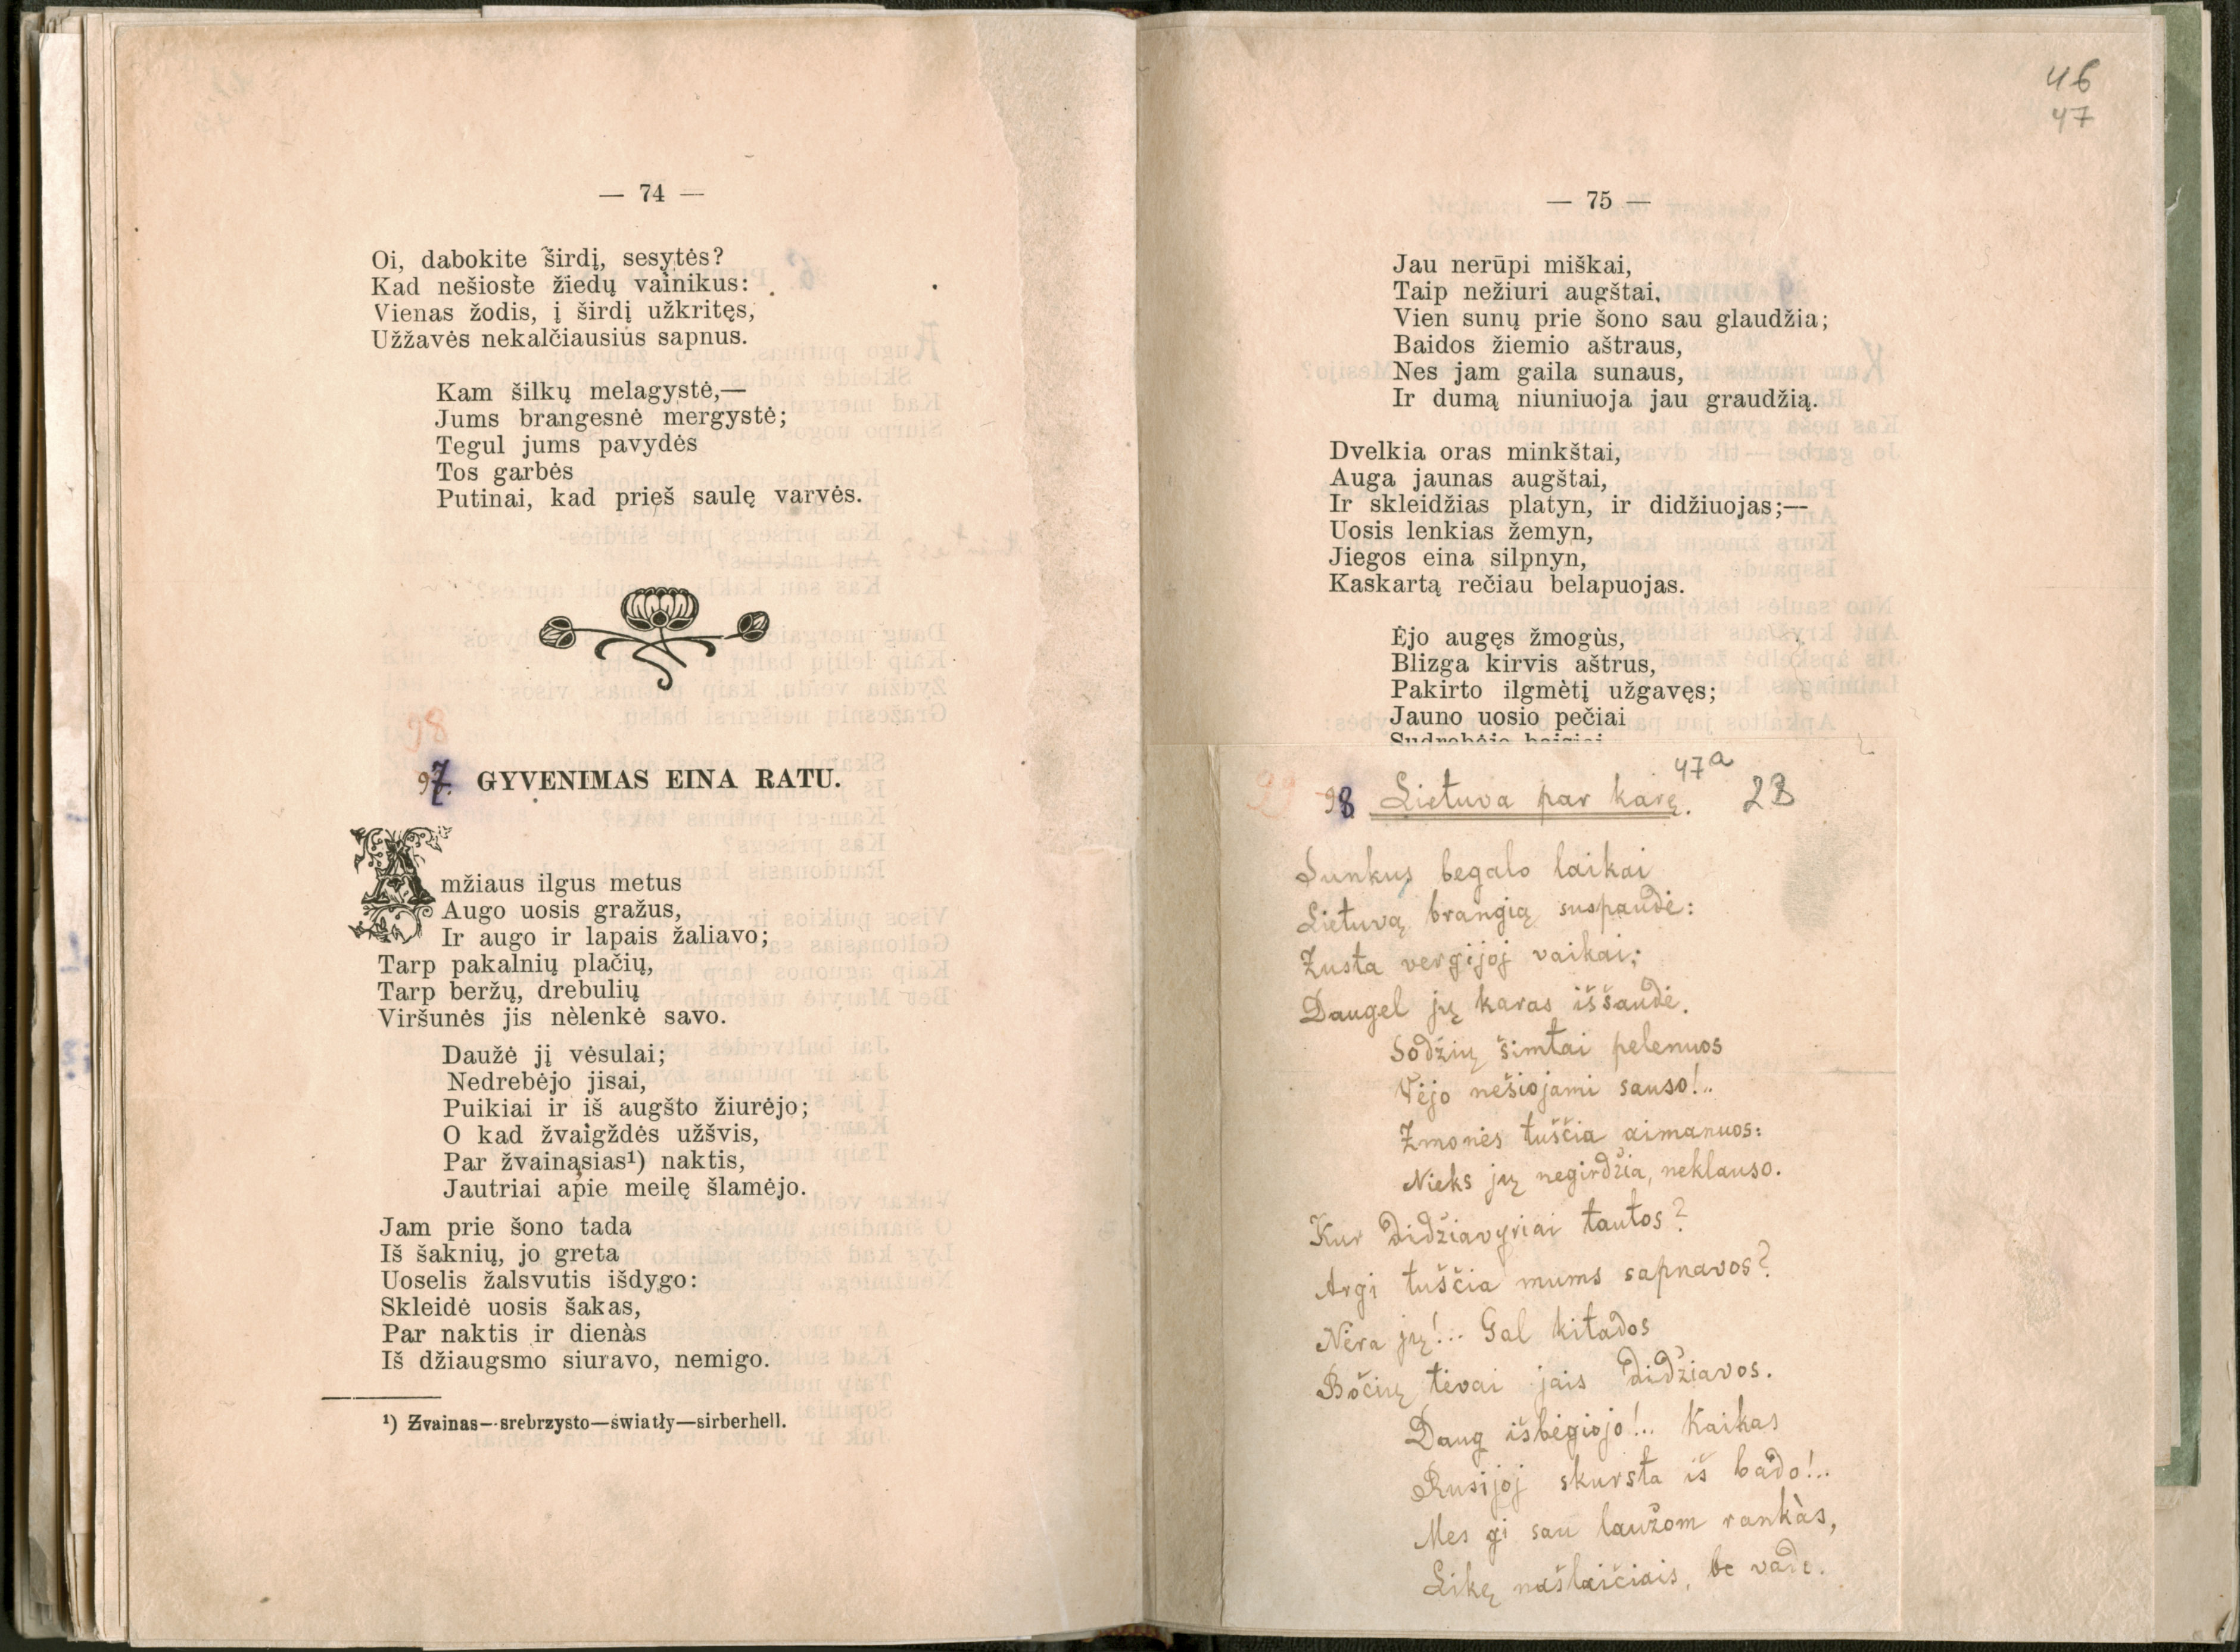 — 74 —
Oi, dabokite širdį, sesytės?
Kad nešioste žiedų vainikus:
Vienas žodis, į širdį užkritęs,
Užžavės nekalčiausius sapnus.
Kam šilkų melagystė,—
Jums brangesnė mergystė;
Tegul jums pavydės
Tos garbės
Putinai, kad prieš saulę varvės.
98
97. GYVENIMAS EINA RATU.
Amžiaus ilgus metus
Augo uosis gražus,
Ir augo ir lapais žaliavo;
Tarp pakalnių plačių,
Tarp beržų, drebulių
Viršunės jis nėlenkė savo.
Daužė jį vėsulai;
Nedrebėjo jisai,
Puikiai ir iš augšto žiurėjo;
O kad žvaigždės užšvis,
Par žvainąsias¹) naktis,
Jautriai apie meilę šlamėjo.
Jam prie šono tada
Iš šaknių, jo greta
Uoselis žalsvutis išdygo:
Skleidė uosis šakas,
Par naktis ir dienàs
Iš džiaugsmo siuravo, nemigo.
¹) Zvainas—srebrzysto—światły—sirberhell.
46
47
— 75 —
Jau nerūpi miškai,
Taip nežiuri augštai,
Vien sunų prie šono sau glaudžia;
Baidos žiemio aštraus,
Nes jam gaila sunaus,
Ir dumą niuniuoja jau graudžią.
Dvelkia oras minkštai,
Auga jaunas augštai,
Ir skleidžias platyn, ir didžiuojas;—
Uosis lenkias žemyn,
Jiegos eina silpnyn,
Kaskartą rečiau belapuojas.
Ėjo augęs žmogùs,
Blizga kirvis aštrus,
Pakirto ilgmėtį užgavęs;
Jauno uosio pečiai
Sudrebėjo baisiai
47a
99 98 Lietuva par karę. 23
Sunkus begalo laikai
Lietuvą brangią suspaudė:
Žusta vergijoj vaikai;
Daugel jų karas iššaudė.
Sodžių šimtai pelenuos
Vėjo nešiojami sauso!..
Žmonės tuščia aimanuos:
Nieks jų negirdžia, neklauso.
Kur didžiavyriai tautos?
Argi tuščia mums sapnavos?
Nėra jų!.. Gal kitados
Bočių tėvai jais didžiavos.
Daug išbėgiojo!.. Kaikas
Rusijoj skursta iš bado!..
Mes gi sau laužom rankàs,
Likę našlaičiais, be vado.